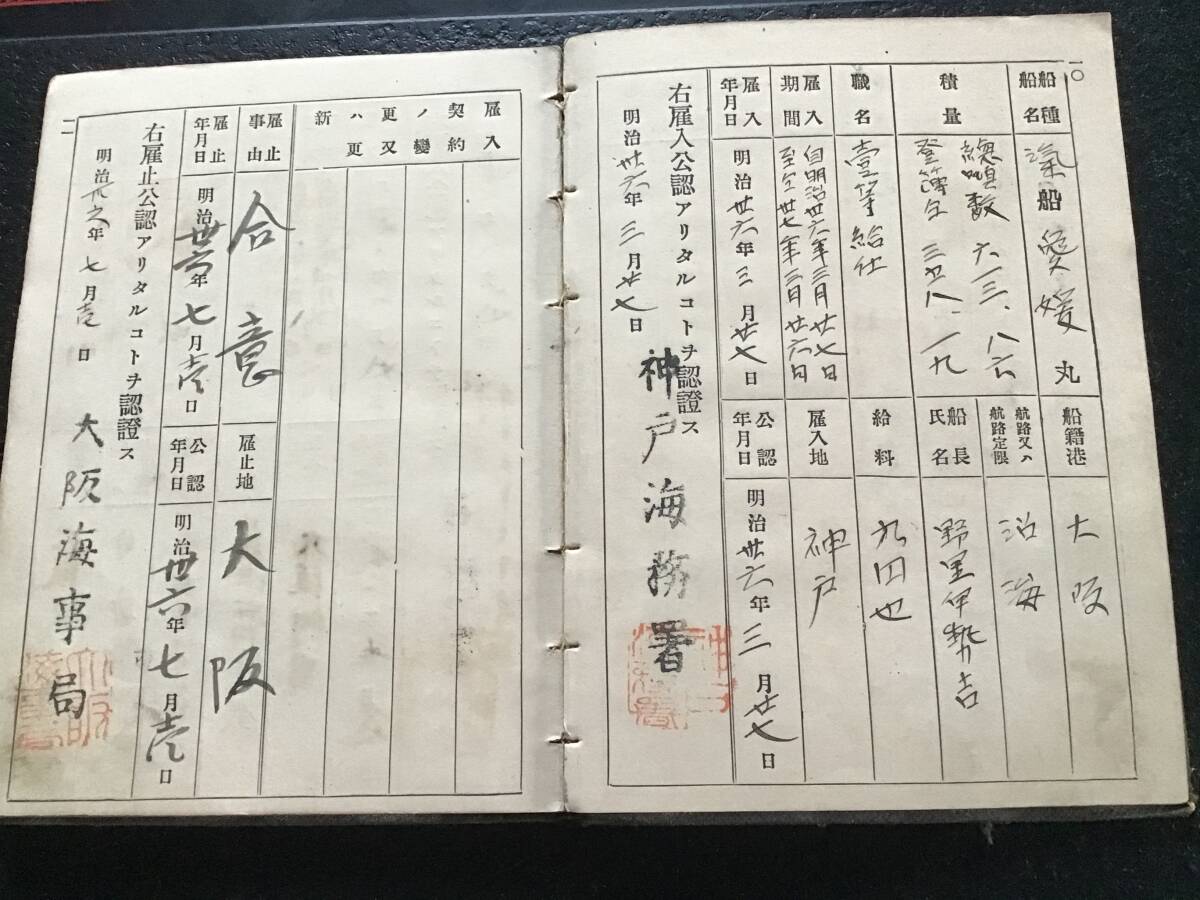 一〇
船種船名
汽船愛媛丸
船籍港
大阪
積量
總噸数 六一三、八六
登簿仝 三七八、一九
航路又ハ航路定限
沿海
船長氏名
野里伊勢吉
職名
壹等給仕
給料
九円也
雇入期間
自明治卅六年三月廿七日
至仝卅七年三月廿六日
雇入地
神戸
雇入年月日
明治卅六年三月廿七日
公認年月日
明治卅六年三月廿七日
右雇入公認アリタルコトヲ認證ス
明治卅六年三月廿七日
神戸海務署
一一
雇入契約ノ變更又ハ更新
雇止事由
合意
雇止地
大阪
雇止年月日
明治卅六年七月壱日
公認年月日
明治卅六年七月壱日
右雇止公認アリタルコトヲ認證ス
明治卅六年七月壱日
大阪海事局